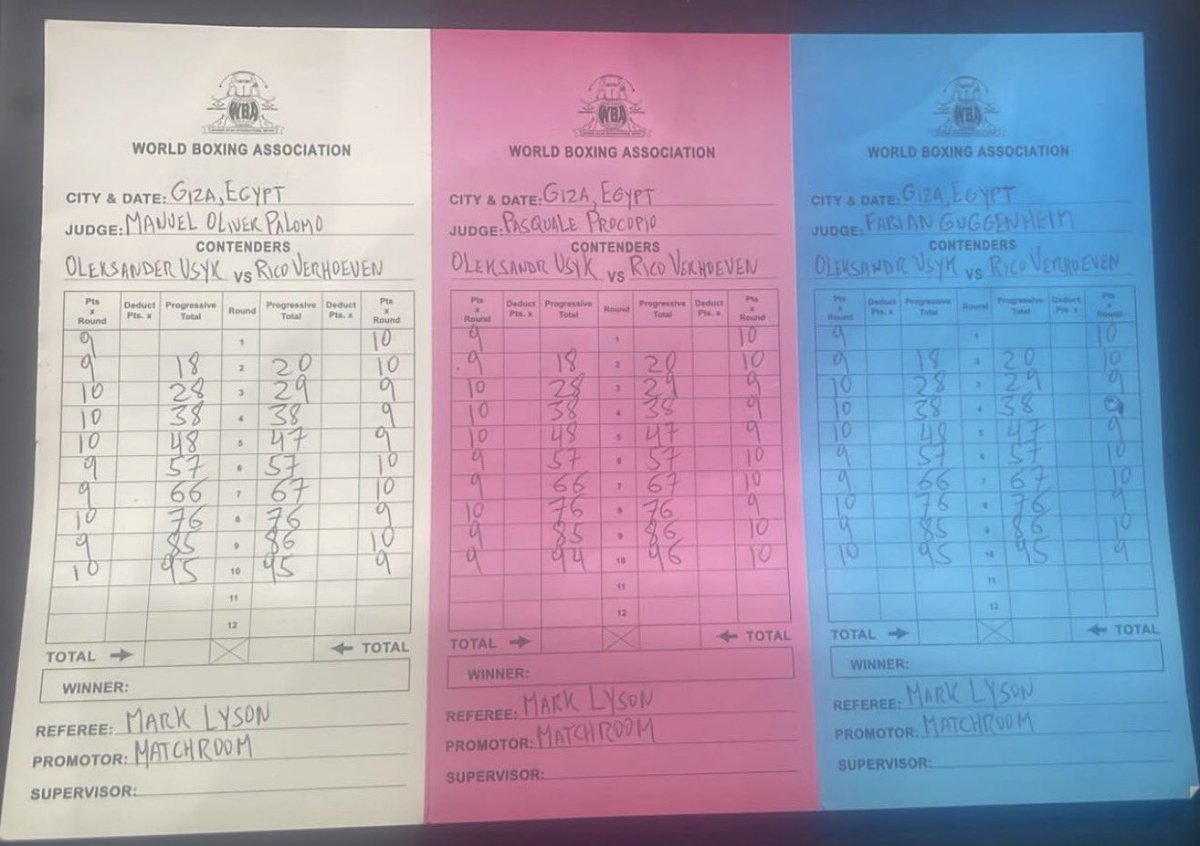 WBA
WORLD BOXING ASSOCIATION
CITY & DATE: GIZA, EGYPT
JUDGE: MANUEL OLIVER PALOMO
CONTENDERS
OLEKSANDER USYK VS RICO VERHOEVEN
Pts x Round Deduct Pts. x Progressive Total Round Progressive Total Deduct Pts. x Pts x Round
9 1 10
9 18 2 20 10
10 28 3 29 9
10 38 4 38 9
10 48 5 47 9
9 57 6 57 10
9 66 7 67 10
10 76 8 76 9
9 85 9 86 10
10 95 10 95 9
11
12
TOTAL → ← TOTAL
WINNER:
REFEREE: MARK LYSON
PROMOTOR: MATCHROOM
SUPERVISOR:
WBA
WORLD BOXING ASSOCIATION
CITY & DATE: GIZA, EGYPT
JUDGE: PASQUALE PROCOPIO
CONTENDERS
OLEKSANDR USYK VS RICO VERHOEVEN
Pts x Round Deduct Pts. x Progressive Total Round Progressive Total Deduct Pts. x Pts x Round
9 1 10
9 18 2 20 10
10 28 3 29 9
10 38 4 38 9
10 48 5 47 9
9 57 6 57 10
9 66 7 67 10
10 76 8 76 9
9 85 9 86 10
9 94 10 96 10
11
12
TOTAL → ← TOTAL
WINNER:
REFEREE: MARK LYSON
PROMOTOR: MATCHROOM
SUPERVISOR:
WBA
WORLD BOXING ASSOCIATION
CITY & DATE: GIZA, EGYPT
JUDGE: FABIAN GUGGENHEIM
CONTENDERS
OLEKSANDR USYK VS RICO VERHOEVEN
Pts x Round Deduct Pts. x Progressive Total Round Progressive Total Deduct Pts. x Pts x Round
9 1 10
9 18 2 20 10
10 28 3 29 9
10 38 4 38 9
10 48 5 47 9
9 57 6 57 10
9 66 7 67 10
10 76 8 76 9
9 85 9 86 10
10 95 10 95 9
11
12
TOTAL → ← TOTAL
WINNER:
REFEREE: MARK LYSON
PROMOTOR: MATCHROOM
SUPERVISOR: